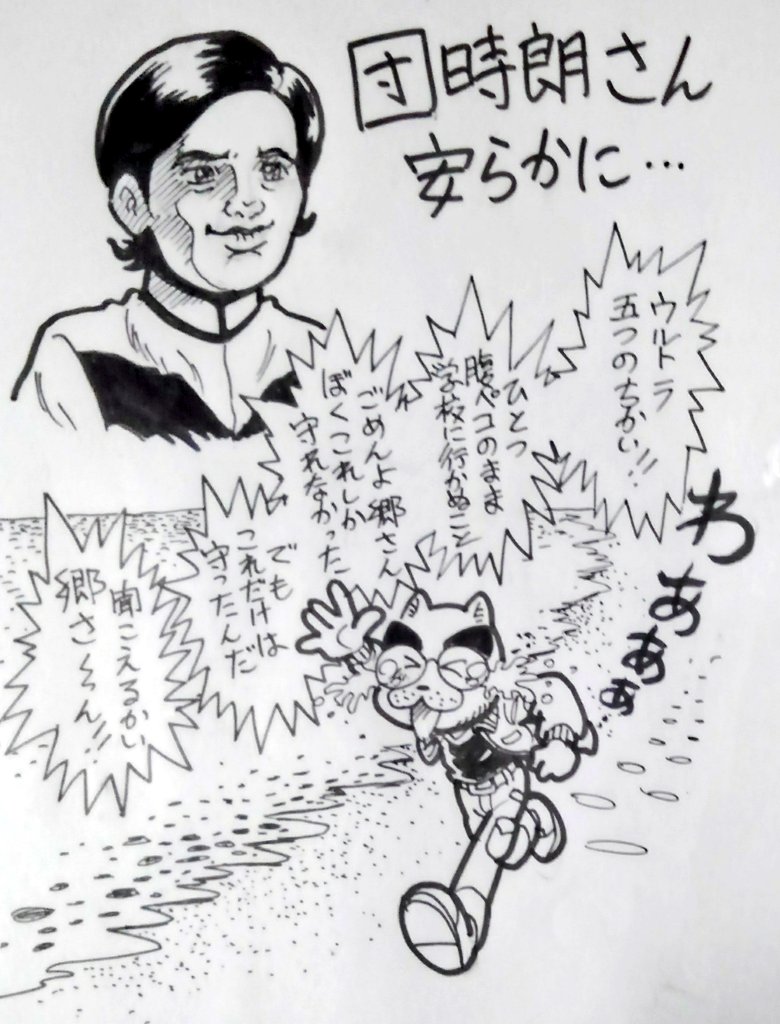 団時朗さん
安らかに…
ウルトラ
五つのちかい!!
ひとつ
腹ペコのまま
学校に行かぬこと
ごめんよ郷さん
ぼくこれしか
守れなかった
でも
これだけは
守ったんだ
聞こえるかい
郷さぁん!!
わぁぁぁ